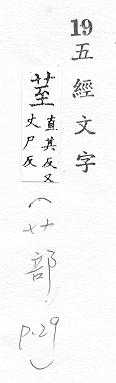 19
五經文字
荎
直其反又
丈尸反
（艹部.
p.29）